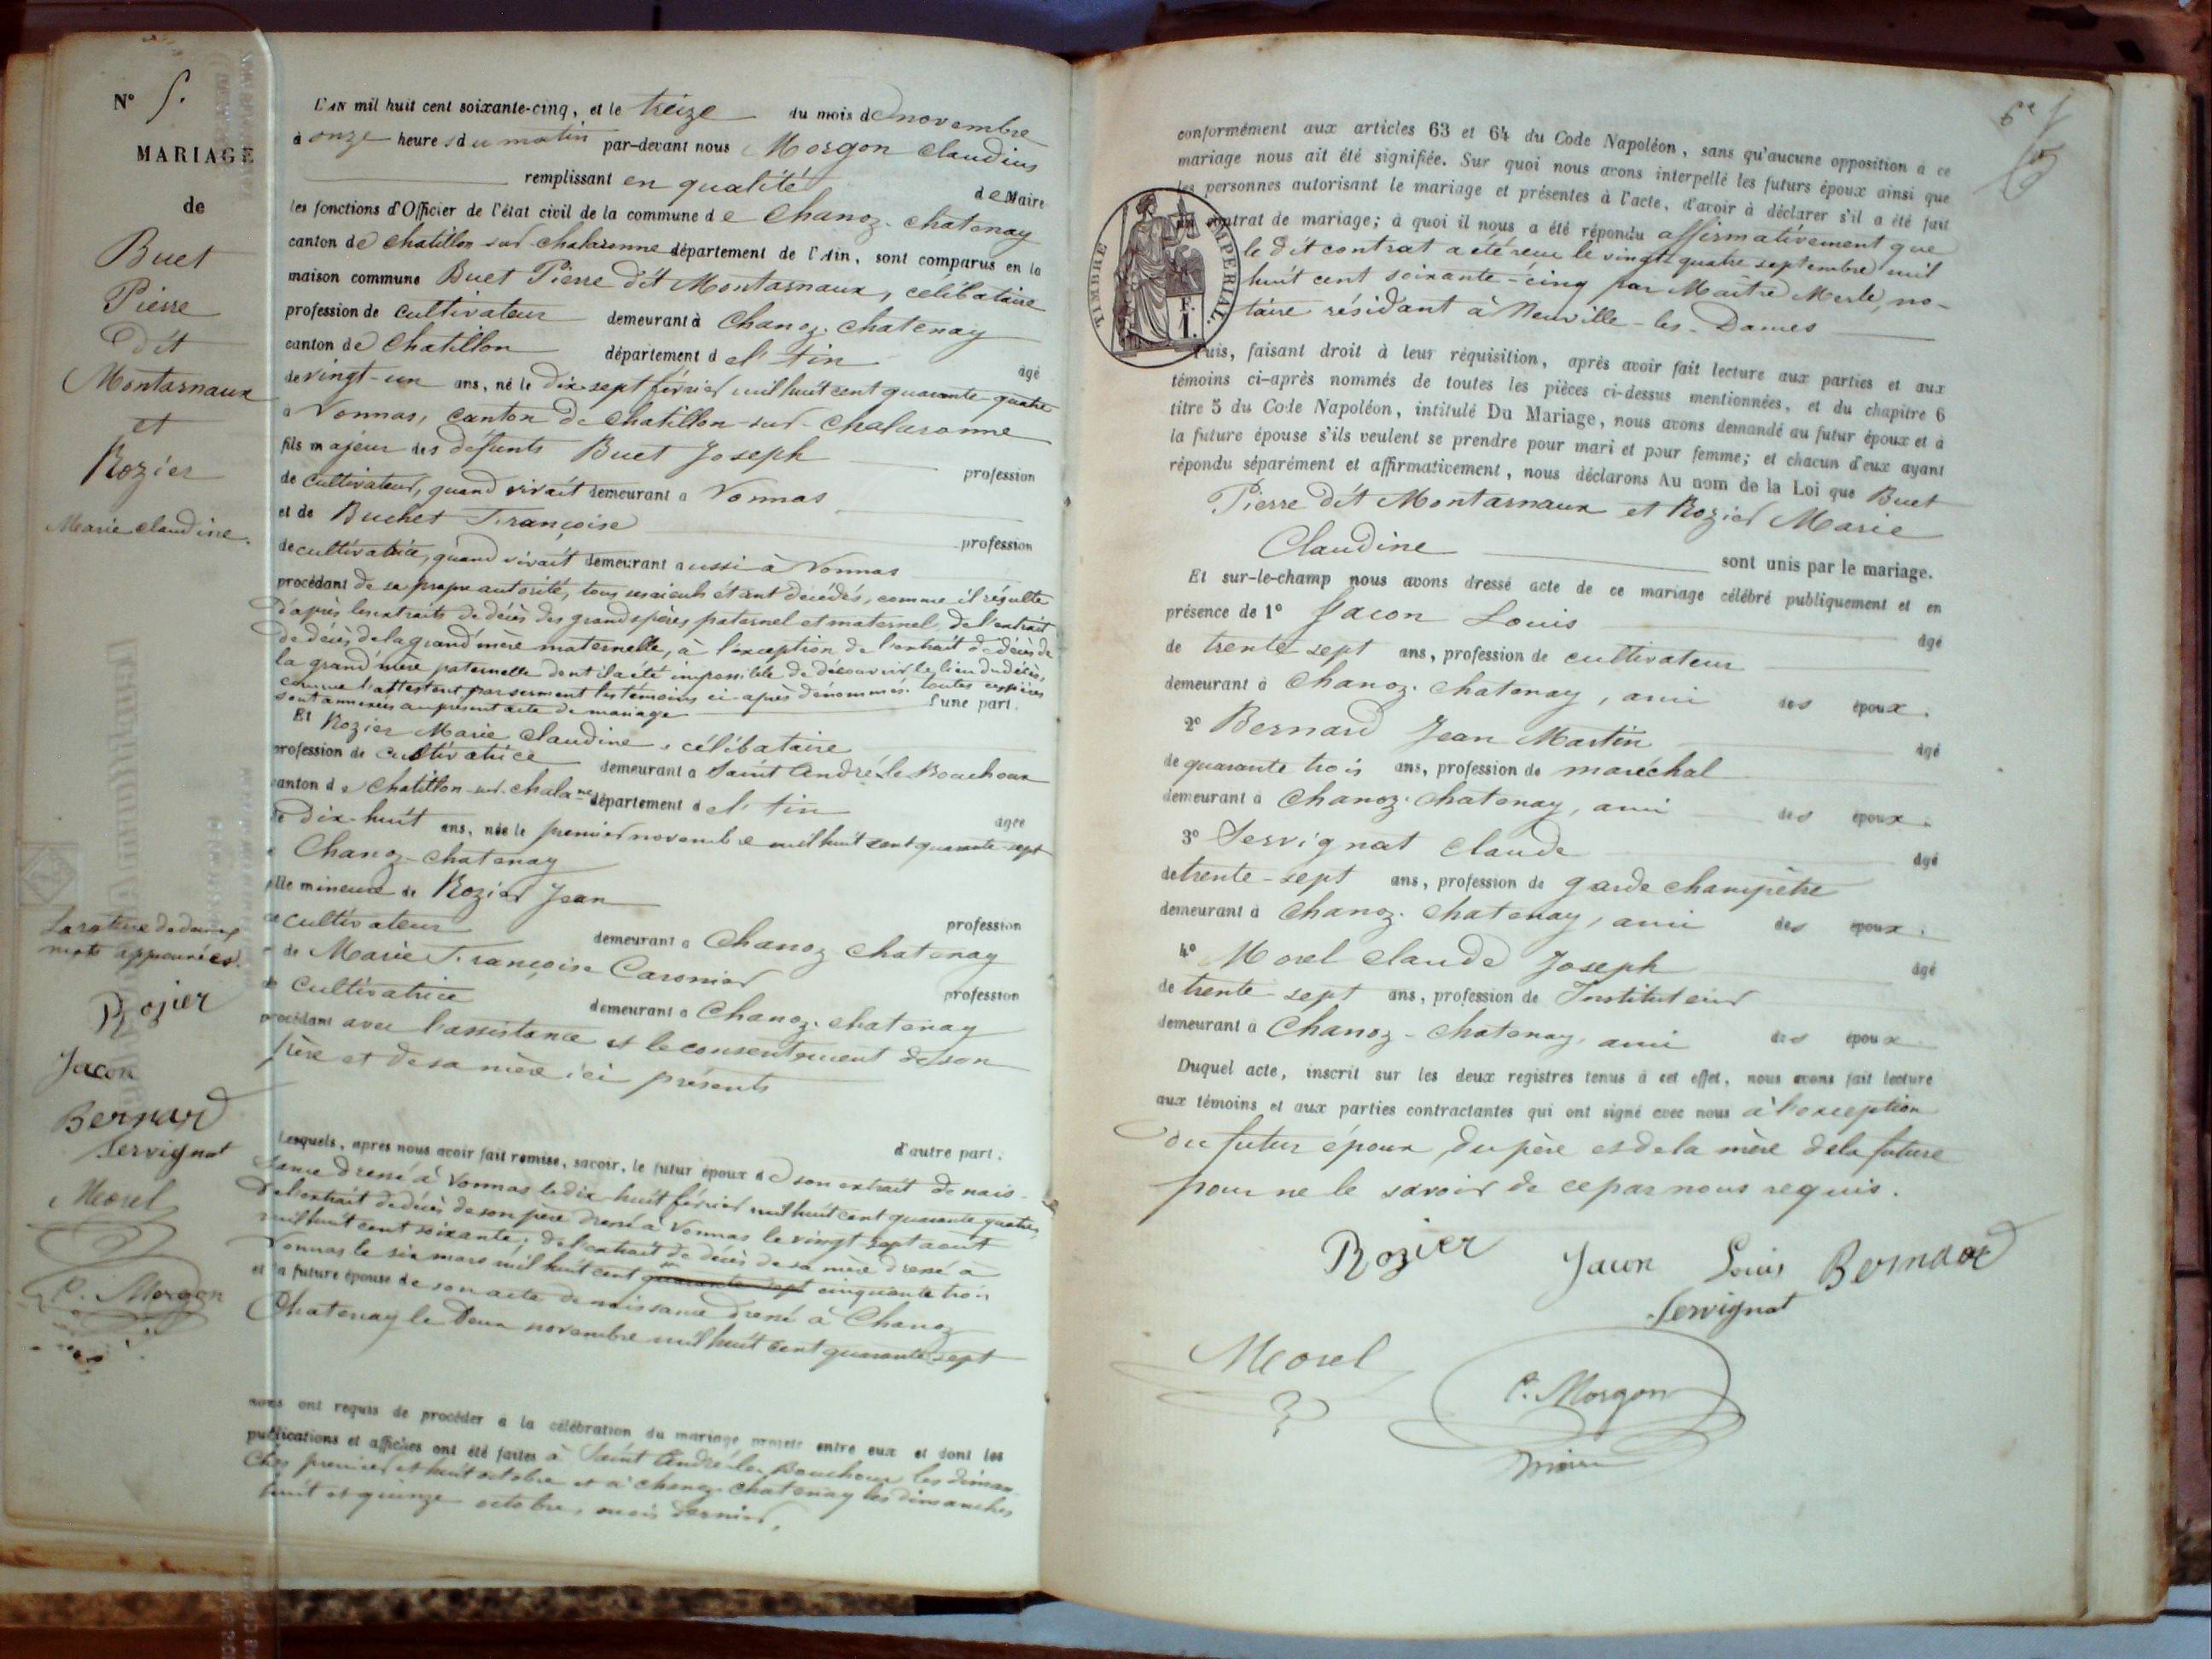 N° 5.
MARIAGE
de
Buet
Pierre
dit
Montarnaux
et
Rozier
Marie Claudine.
La rature de deux
mots approuvées.
Rozier
Jacon
Bernard
Servignat
Morel
C. Morgon
L'AN mil huit cent soixante-cinq, et le treize du mois de novembre
à onze heures du matin par-devant nous Morgon Claudius
remplissant en qualité de Maire
les fonctions d'Officier de l'état civil de la commune de Chanoz-Chatenay
canton de Chatillon-sur-Chalaronne département de l'Ain, sont comparus en la
maison commune Buet Pierre dit Montarnaux, célibataire
profession de cultivateur demeurant à Chanoz-Chatenay
canton de Chatillon département de l'Ain âgé
de vingt-un ans, né le dix-sept février mil huit cent quarante-quatre
à Vonnas, canton de Chatillon-sur-Chalaronne
fils majeur des défunts Buet Joseph profession
de cultivateur, quand vivait demeurant à Vonnas
et de Buchet Françoise profession
de cultivatrice, quand vivait demeurant aussi à Vonnas
procédant de sa propre autorité, tous ses aieuls étant décédés, comme il résulte
d'après les extraits de décès des grands pères paternel et maternel, de l'extrait
de décès de la grand'mère maternelle, à l'exception de l'extrait de décès de
la grand'mère paternelle dont il a été impossible de découvrir le lieu du décès,
comme l'attestent par serment les témoins ci-après dénommés. toutes ces pièces
sont annexées au présent acte de mariage d'une part.
Et Rozier Marie Claudine, célibataire
profession de cultivatrice demeurant à Saint André le Bouchoux
canton de Chatillon-sur-Chalane département de l'Ain agée
de dix-huit ans, née le premier novembre mil huit cent quarante-sept
à Chanoz-Chatenay
fille mineure de Rozier Jean profession
de cultivateur demeurant à Chanoz-Chatenay
et de Marie Françoise Caronier profession
de cultivatrice demeurant à Chanoz-Chatenay
procédant avec l'assistance et le consentement de son
père et de sa mère ici présents
d'autre part.
Lesquels, après nous avoir fait remise, savoir, le futur époux de son extrait de nais-
sance dressé à Vonnas le dix huit février mil huit cent quarante quatre,
de l'extrait de décès de son père dressé à Vonnas le vingt sept aout
mil huit cent soixante; de l'extrait de décès de sa mère dressé à
Vonnas le six mars mil huit cent quarante sept cinquante trois
et la future épouse de son acte de naissance dressé à Chanoz
Chatenay le deux novembre mil huit cent quarante sept
nous ont requis de procéder à la célébration du mariage projeté entre eux et dont les
publications et affiches ont été faites à Saint André-le-Bouchoux les diman-
ches premier et huit octobre et à Chanoz-Chatenay les dimanches
huit et quinze octobre, mois dernier,
6e
conformément aux articles 63 et 64 du Code Napoléon, sans qu'aucune opposition à ce
mariage nous ait été signifiée. Sur quoi nous avons interpellé les futurs époux ainsi que
les personnes autorisant le mariage et présentes à l'acte, d'avoir à déclarer s'il a été fait
contrat de mariage; à quoi il nous a été répondu affirmativement que
le dit contrat a été reçu le vingt quatre septembre mil
huit cent soixante-cinq par Maître Merle, no-
taire résidant à Neuville-les-Dames
TIMBRE IMPERIAL.
F.
1.
Puis, faisant droit à leur réquisition, après avoir fait lecture aux parties et aux
témoins ci-après nommés de toutes les pièces ci-dessus mentionnées, et du chapitre 6
titre 5 du Code Napoléon, intitulé Du Mariage, nous avons demandé au futur époux et à
la future épouse s'ils veulent se prendre pour mari et pour femme; et chacun d'eux ayant
répondu séparément et affirmativement, nous déclarons Au nom de la Loi que Buet
Pierre dit Montarnaux et Rozier Marie
Claudine sont unis par le mariage.
Et sur-le-champ nous avons dressé acte de ce mariage célébré publiquement et en
présence de 1° Jacon Louis âgé
de trente sept ans, profession de cultivateur
demeurant à Chanoz-Chatenay, ami des époux.
2° Bernard Jean Martin âgé
de quarante trois ans, profession de maréchal
demeurant à Chanoz-Chatenay, ami des époux.
3° Servignat Claude âgé
de trente-sept ans, profession de garde champêtre
demeurant à Chanoz-Chatenay, ami des époux.
4° Morel Claude Joseph âgé
de trente-sept ans, profession de Instituteur
demeurant à Chanoz-Chatenay, ami des époux
Duquel acte, inscrit sur les deux registres tenus à cet effet, nous avons fait lecture
aux témoins et aux parties contractantes qui ont signé avec nous à l'exception
du futur époux, du père et de la mère de la future
pour ne le savoir de ce par nous requis.
Rozier Jacon Louis Bernard
Servignat
Morel
C. Morgon
maire